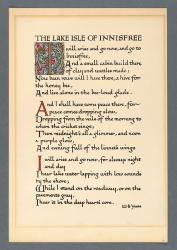 THE LAKE ISLE OF INNISFREE
I will arise and go now, and go to
Innisfree,
And a small cabin build there,
of clay and wattles made;
Nine bean rows will I have there, a hive for
the honey bee,
And live alone in the bee-loud glade.
And I shall have some peace there, for
peace comes dropping slow,
Dropping from the veils of the morning to
where the cricket sings;
There midnight's all a glimmer, and noon
a purple glow,
And evening full of the linnet's wings
I will arise and go now, for always night
and day
I hear lake water lapping with low sounds
by the shore;
While I stand on the roadway, or on the
pavements gray,
I hear it in the deep heart's core.
W·B·Yeats